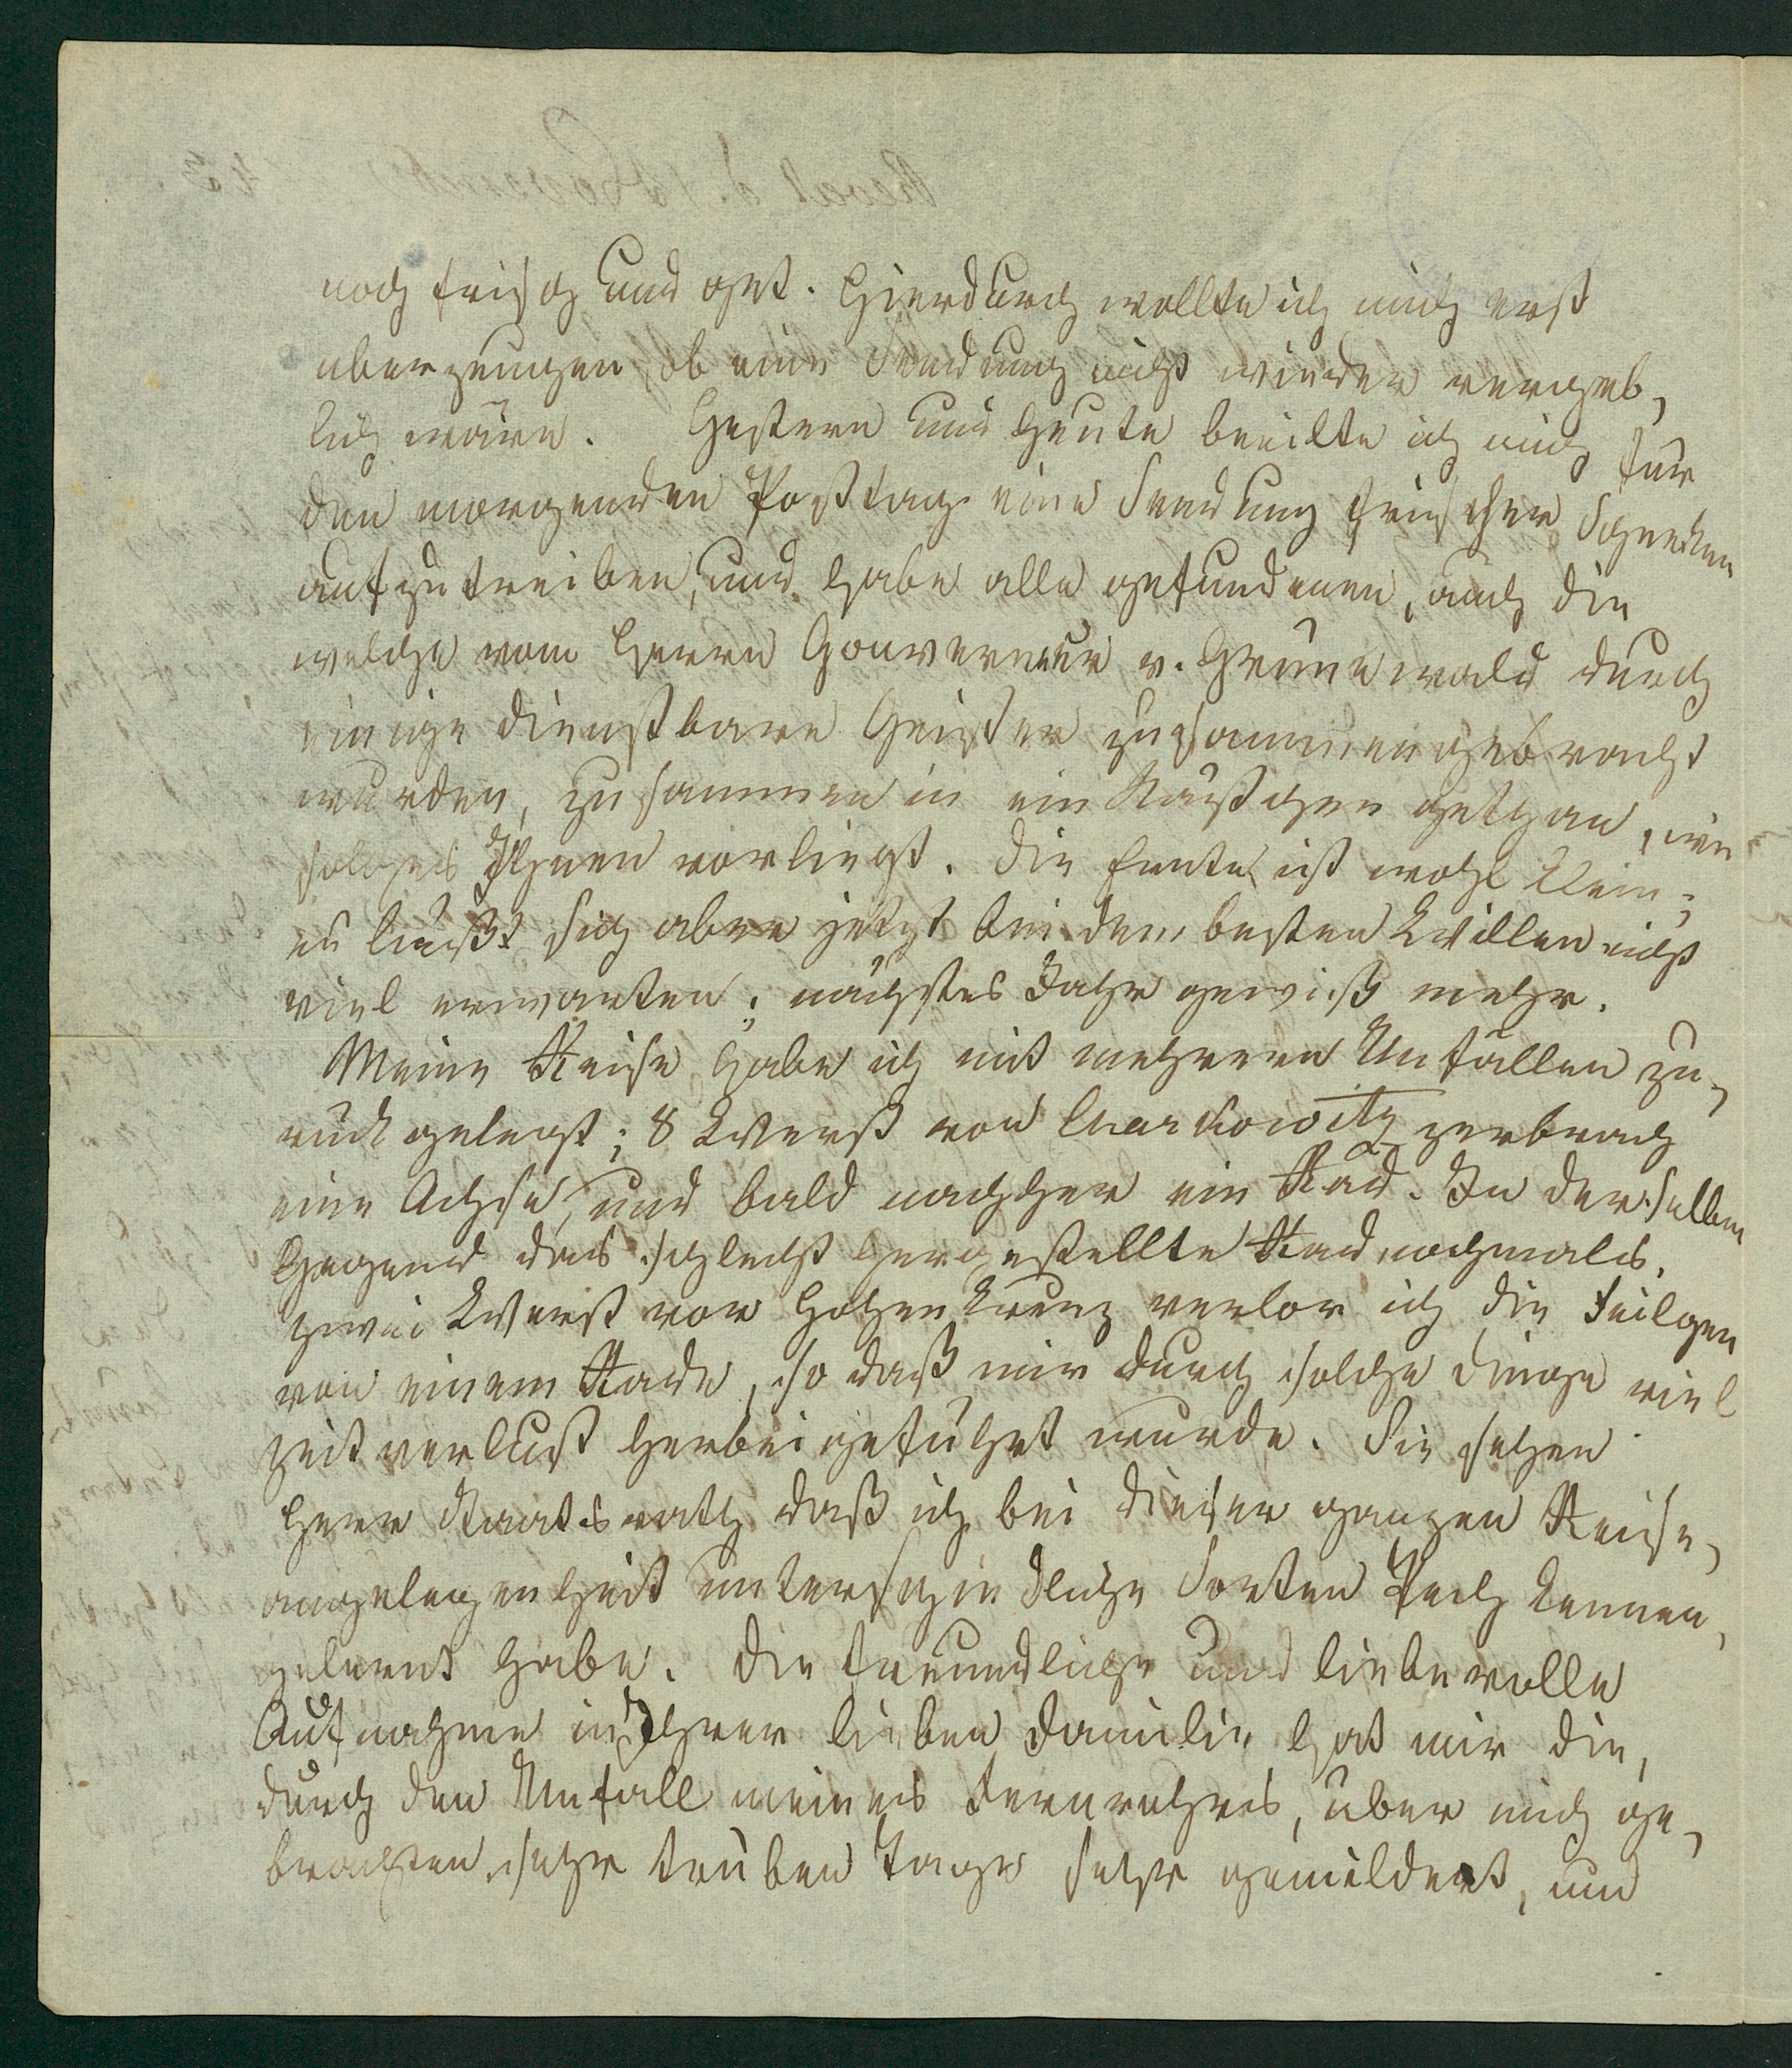 noch frisch und gut. Hierdurch wollte ich mich erst
überzeugen, ob eine Sendung nicht wieder vergeb-
lich wäre. Gestern und heute beeilte ich mich für
den morgenden Posttag eine Sendung frischer Schnecken
aufzutreiben, und habe alle gefundenen, auch die
welche vom Herrn Gouverneur v. Grünewald durch
einige dienstbare Geister zusammengebracht
wurden, zusammen in ein Kästchen gethan, wie
solches Ihnen vorliegt. Die Ernte ist wohl klein;
es ließt sich aber jetzt bei dem besten Willen nicht
viel erwarten; nächstes Jahr gewiß mehr.
Meine Reise habe ich mit mehrern Unfällen zu-
rückgelegt; 8 Werst von Charkowitz zerbrach
eine Achse, und bald nachher ein Rad. In derselben
Gegend das schlecht hergestellte Rad nochmals,
zwei Werst vor Hohenkreuz verlor ich die Feilgen
von einem Rade, so daß mir durch solche Dinge viel
Zeitverlust herbeigeführt wurde. Sie sehen
Herr Staatsrath, daß ich bei dieser ganzen Reise-
angelegenheit unterschiedliche Sorten Pech kennen
gelernt habe. Die freundliche und liebevolle
Aufnahme in Ihrer lieben Familie hat mir die,
durch den Unfall meines Fernrohrs, über mich ge-
brachten sehr trüben Tage sehr gemildert, und